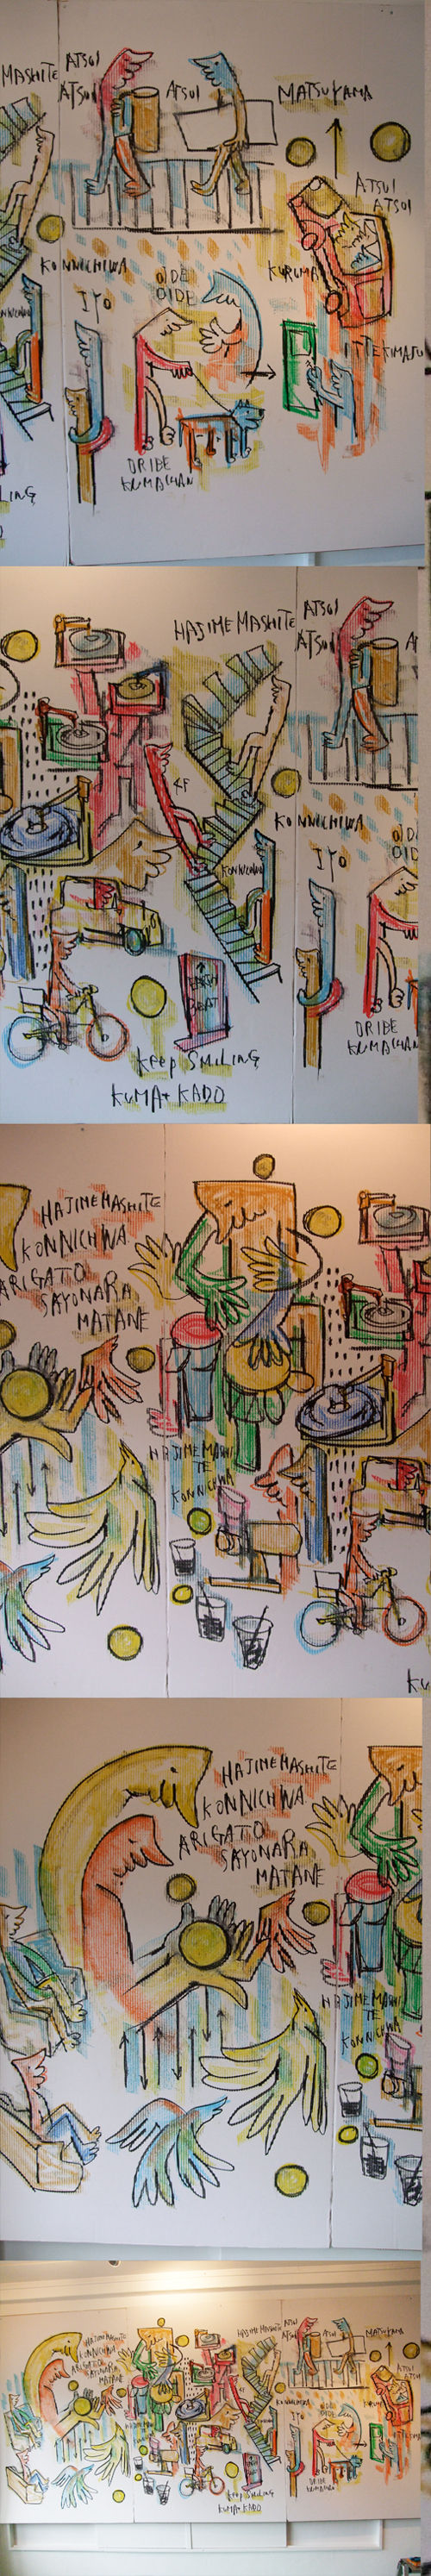 MASHITE
ATSUI
ATSUI
ATSUI
MATSUYAMA
ATSUI
ATSUI
KONNICHIWA
IYO
OIDE
OIDE
KURUMA
ITTEKIMASU
ORIBE
KUMACHAN
LING
HAJIMEMASHITE
ATSUI
ATSUI
A
4F
KONNICHIWA
KONNICHIWA
IYO
OIDE
OIDE
EARTH
BEAT
ORIBE
KUMACHAN
Keep SMiLiNG
KUMA+KADO
HAJIMEMASHITE
KONNICHIWA
ARIGATO
SAYONARA
MATANE
HAJIMEMASHI
TE
KONNICHIWA
KU
HAJIMEMASHITE
KONNICHIWA
ARIGATO
SAYONARA
MATANE
HAJIMEMASHI
TE
KONNICHIWA
HAJIMEMASHITE
KONNICHIWA
ARIGATO
SAYONARA
MATANE
HAJIMEMASHITE
ATSUI
ATSUI
ATSUI
MATSUYAMA
ATSUI
ATSUI
KONNICHIWA
IYO
OIDE
OIDE
KURUMA
ORIBE
KUMACHAN
Keep SMiLiNG
KUMA+KADO